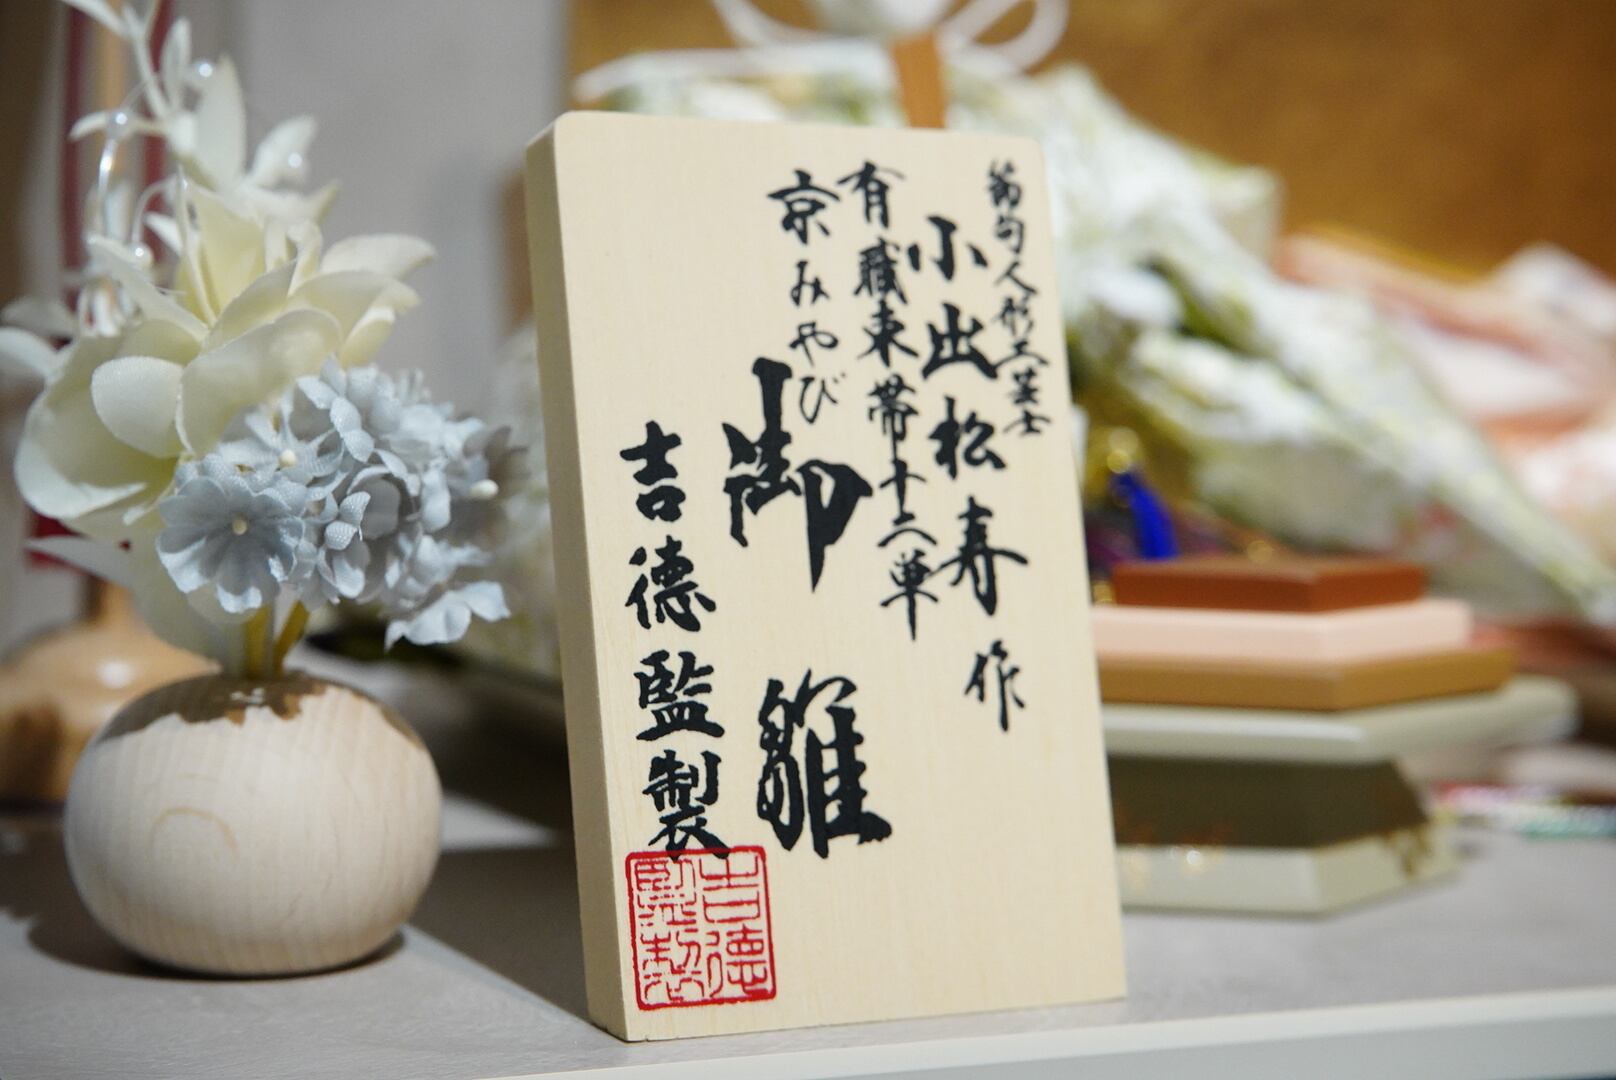 節句人形工芸士
小出松寿作
有職束帯十二単
京みやび
御雛
吉德監製
吉德
監製